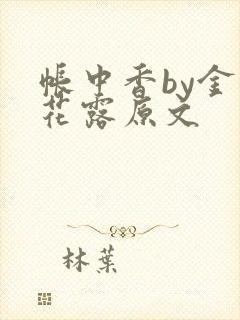 帳中香by金
花露原文
林葉